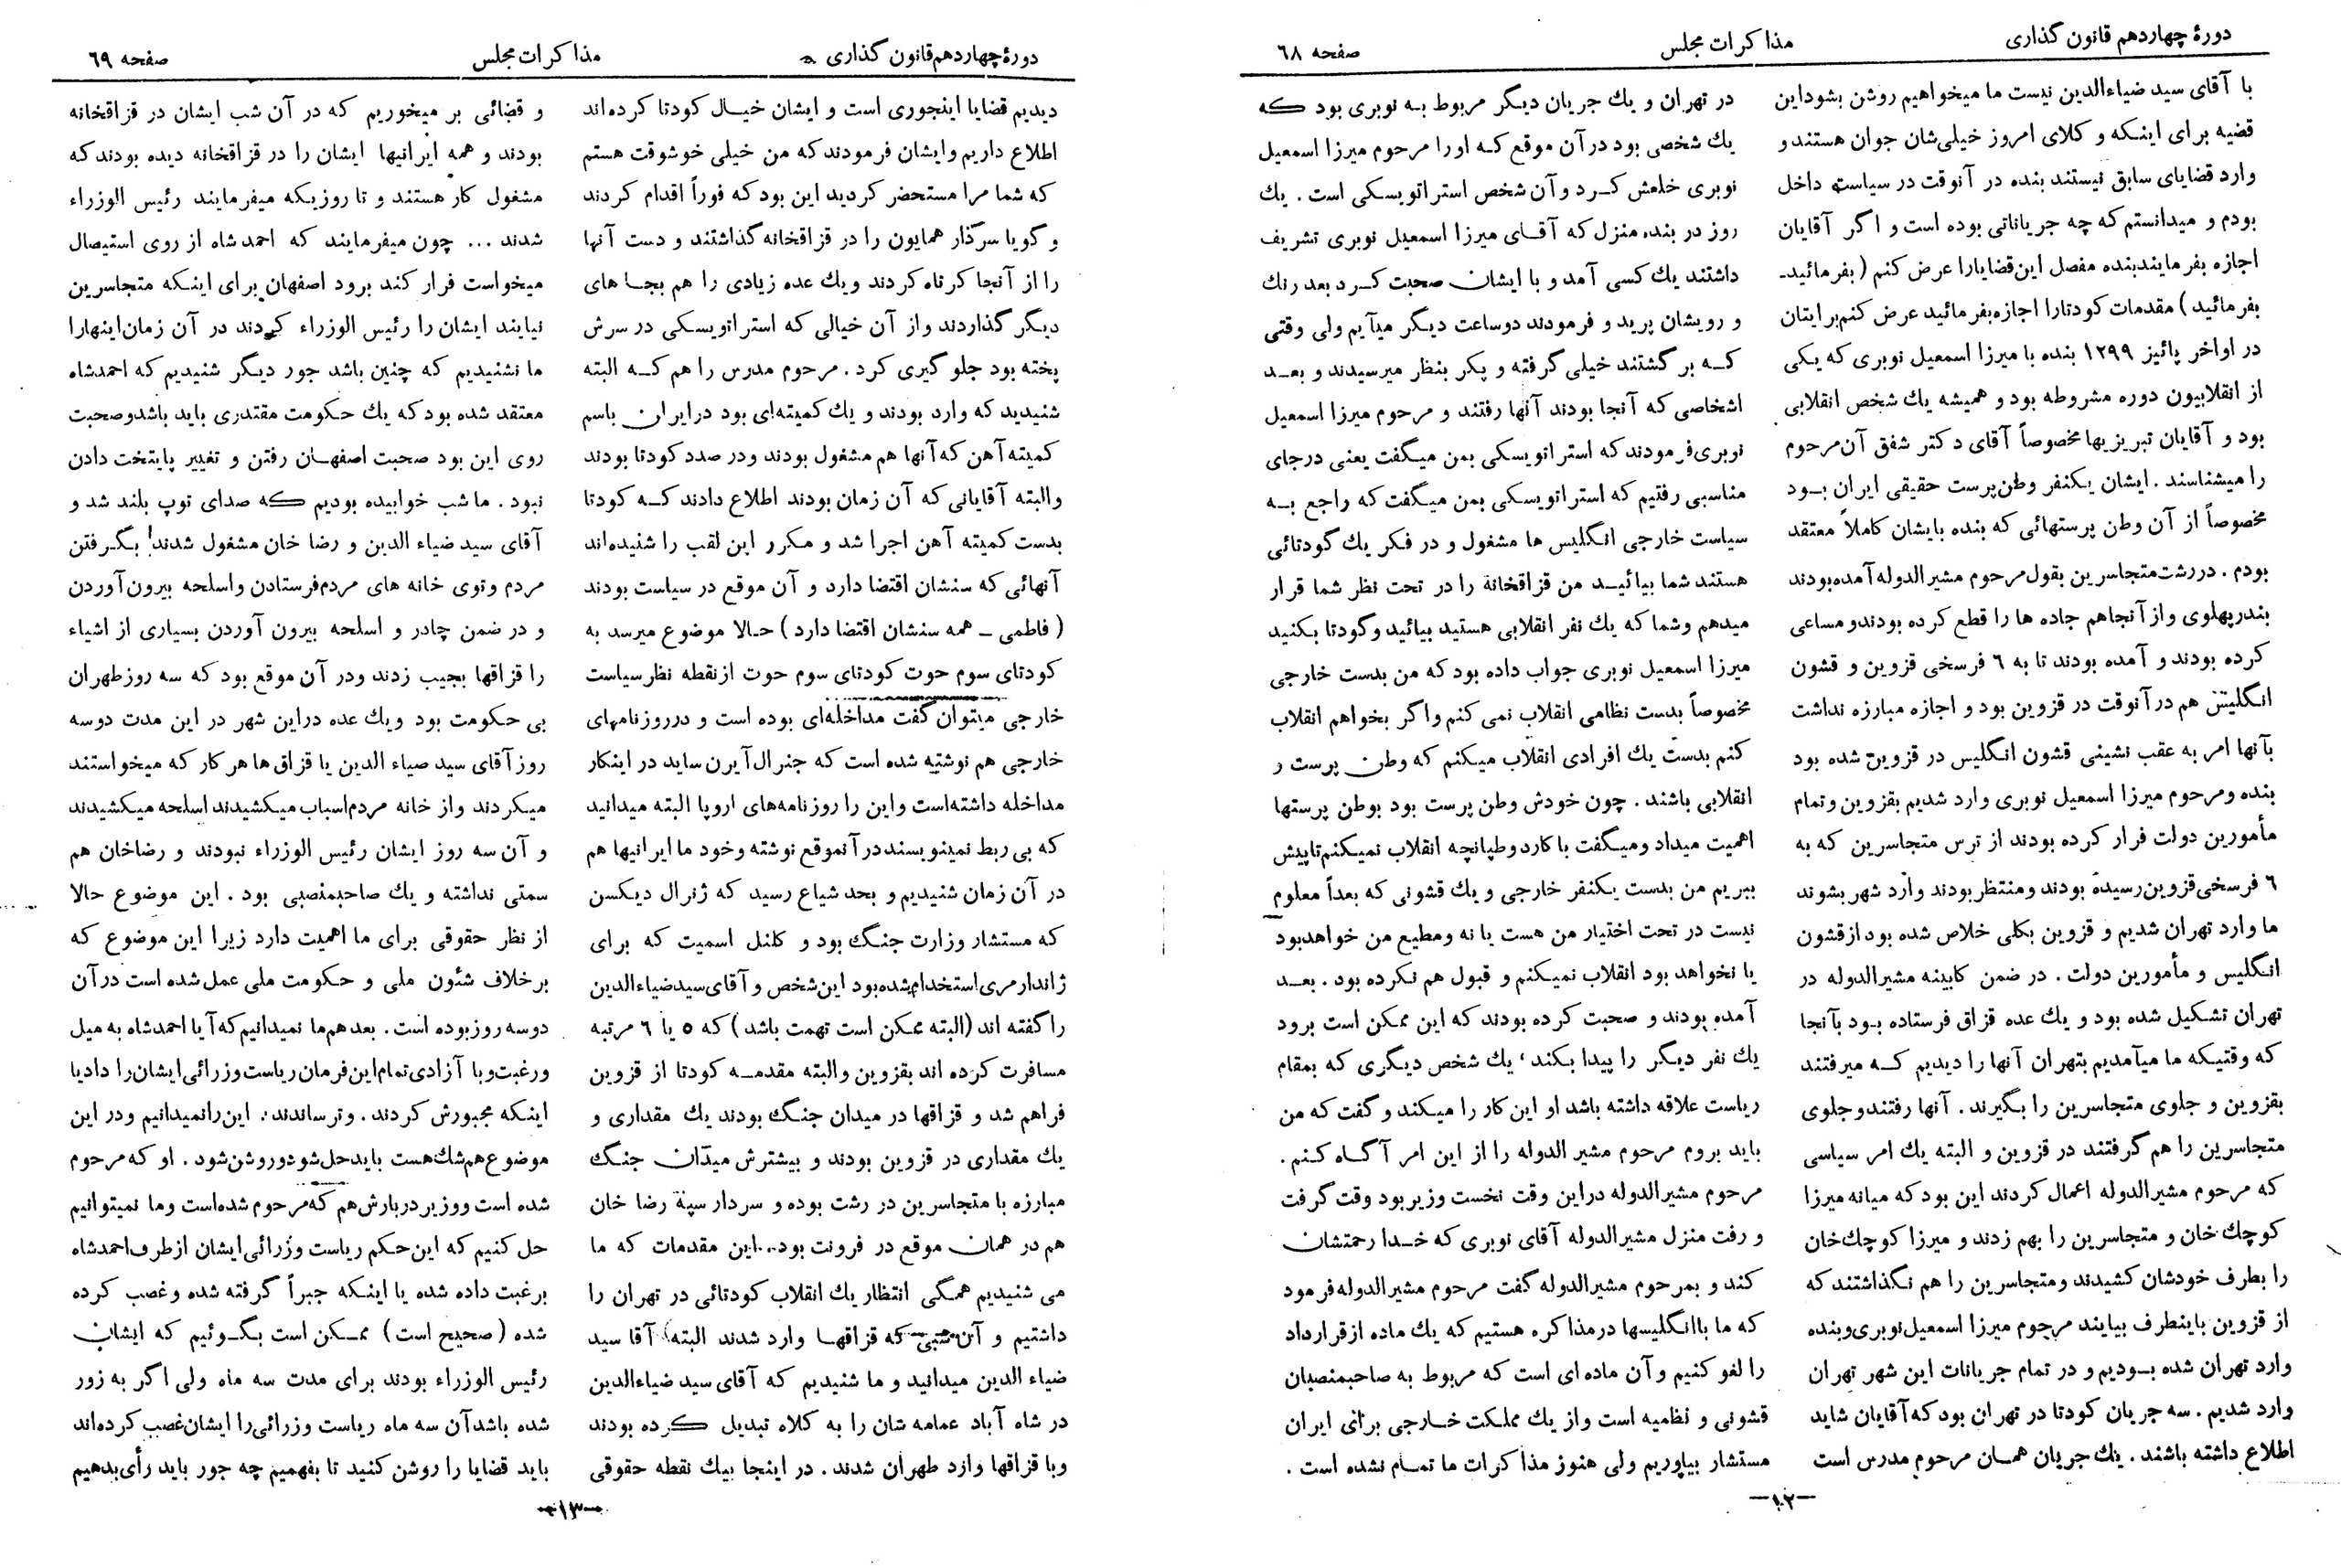 دورهٔ چهاردهم قانون گذاری
مذاکرات مجلس
صفحه ٦٨
با آقای سید ضیاءالدین نیست ما میخواهیم روشن بشود این
قضیه برای اینکه و کلای امروز خیلی‌شان جوان هستند و
وارد قضایای سابق نیستند بنده در آنوقت در سیاست داخل
بودم و میدانستم که چه جریاناتی بوده است و اگر آقایان
اجازه بفرمایند بنده مفصل این قضایا را عرض کنم (بفرمائید ـ
بفرمائید) مقدمات کودتا را اجازه بفرمائید عرض کنم برایتان
در اواخر پائیز ۱۲۹۹ بنده با میرزا اسمعیل نوبری که یکی
از انقلابیون دوره مشروطه بود و همیشه یك شخص انقلابی
بود و آقایان تبریزیها مخصوصاً آقای دکتر شفق آن مرحوم
را میشناسند . ایشان یکنفر وطن‌پرست حقیقی ایران بود
مخصوصاً از آن وطن پرستهائی که بنده بایشان کاملاً معتقد
بودم . در رشت متجاسرین بقول مرحوم مشیرالدوله آمده بودند
بندرپهلوی و از آنجا هم جاده ها را قطع کرده بودند و مساعی
کرده بودند و آمده بودند تا به ٦ فرسخی قزوین و قشون
انگلیس هم در آنوقت در قزوین بود و اجازه مبارزه نداشت
بآنها امر به عقب نشینی قشون انگلیس در قزوین شده بود
بنده ومرحوم میرزا اسمعیل نوبری وارد شدیم بقزوین وتمام
مأمورین دولت فرار کرده بودند از ترس متجاسرین که به
٦ فرسخی قزوین رسیده بودند ومنتظر بودند وارد شهر بشوند
ما وارد تهران شدیم و قزوین بکلی خلاص شده بود از قشون
انگلیس و مأمورین دولت . در ضمن کابینه مشیرالدوله در
تهران تشکیل شده بود و یك عده قزاق فرستاده بود بآنجا
که وقتیکه ما میآمدیم بتهران آنها را دیدیم که میرفتند
بقزوین و جلوی متجاسرین را بگیرند . آنها رفتند و جلوی
متجاسرین را هم گرفتند در قزوین و البته یك امر سیاسی
که مرحوم مشیرالدوله اعمال کردند این بود که میانه میرزا
کوچك خان و متجاسرین را بهم زدند و میرزا کوچك خان
را بطرف خودشان کشیدند ومتجاسرین را هم نگذاشتند که
از قزوین باینطرف بیایند مرحوم میرزا اسمعیل نوبری و بنده
وارد تهران شده بودیم و در تمام جریانات این شهر تهران
وارد شدیم . سه جریان کودتا در تهران بود که آقایان شاید
اطلاع داشته باشند . یك جریان همان مرحوم مدرس است
در تهران و یك جریان دیگر مربوط به نوبری بود که
یك شخصی بود در آن موقع که او را مرحوم میرزا اسمعیل
نوبری خلعش کرد و آن شخص استراتویسکی است . یك
روز در بنده منزل که آقای میرزا اسمعیل نوبری تشریف
داشتند یك کسی آمد و با ایشان صحبت کرد بعد رنك
و رویشان پرید و فرمودند دوساعت دیگر میآیم ولی وقتی
که بر گشتند خیلی گرفته و پکر بنظر میرسیدند و بعد
اشخاصی که آنجا بودند آنها رفتند و مرحوم میرزا اسمعیل
نوبری فرمودند که استراتویسکی بمن میگفت یعنی درجای
مناسبی رفتیم که استراتویسکی بمن میگفت که راجع به
سیاست خارجی انگلیس ها مشغول و در فکر یك گودتائی
هستند شما بیائید من قزاقخانه را در تحت نظر شما قرار
میدهم وشما که یك نفر انقلابی هستید بیائید وگودتا بکنید
میرزا اسمعیل نوبری جواب داده بود که من بدست خارجی
مخصوصاً بدست نظامی انقلاب نمی کنم واگر بخواهم انقلاب
کنم بدست یك افرادی انقلاب میکنم که وطن پرست و
انقلابی باشند . چون خودش وطن پرست بود بوطن پرستها
اهمیت میداد ومیگفت با کارد وطپانچه انقلاب نمیکنم تا پیش
ببریم من بدست یکنفر خارجی و یك قشونی که بعداً معلوم
نیست در تحت اختیار من هست یا نه ومطیع من خواهد بود
یا نخواهد بود انقلاب نمیکنم و قبول هم نکرده بود . بعد
آمده بودند و صحبت کرده بودند که این ممکن است برود
یك نفر دیگر را پیدا بکند، یك شخص دیگری که بمقام
ریاست علاقه داشته باشد او این کار را میکند و گفت که من
باید بروم مرحوم مشیر الدوله را از این امر آگاه کنم .
مرحوم مشیرالدوله دراین وقت نخست وزیر بود وقت گرفت
و رفت منزل مشیرالدوله آقای نوبری که خدا رحمتشان
کند و بمرحوم مشیرالدوله گفت مرحوم مشیرالدوله فرمود
که ما باانگلیسها در مذاکره هستیم که یك ماده از قرارداد
را لغو کنیم و آن ماده ای است که مربوط به صاحبمنصبان
قشونی و نظمیه است واز یك مملکت خارجی برای ایران
مستشار بیاوریم ولی هنوز مذاکرات ما تمام نشده است .
—۱۲—
دورهٔ چهاردهم قانون گذاری
مذاکرات مجلس
صفحه ٦٩
دیدیم قضایا اینجوری است و ایشان خیال کودتا کرده‌اند
اطلاع داریم وایشان فرمودند که من خیلی خوشوقت هستم
که شما مرا مستحضر کردید این بود که فوراً اقدام کردند
و گویا سردار همایون را در قزاقخانه گذاشتند و دست آنها
را از آنجا کوتاه کردند ویك عده زیادی را هم بجا های
دیگر گذاردند واز آن خیالی که استراتویسکی در سرش
پخته بود جلو گیری کرد . مرحوم مدرس را هم که البته
شنیدید که وارد بودند و یك کمیته‌ای بود درایران باسم
کمیته آهن که آنها هم مشغول بودند ودر صدد کودتا بودند
والبته آقایانی که آن زمان بودند اطلاع دادند که کودتا
بدست کمیته آهن اجرا شد و مکرر این لقب را شنیده‌اند
آنهائی که سنشان اقتضا دارد و آن موقع در سیاست بودند
(فاطمی ـ همه سنشان اقتضا دارد) حالا موضوع میرسد به
کودتای سوم حوت کودتای سوم حوت ازنقطه نظر سیاست
خارجی میتوان گفت مداخله‌ای بوده است و درروزنامهای
خارجی هم نوشته شده است که جنرال آیرن ساید در اینکار
مداخله داشته‌است واین را روزنامه‌های اروپا البته میدانید
که بی ربط نمینویسند در آنموقع نوشته وخود ما ایرانیها هم
در آن زمان شنیدیم و بحد شیاع رسید که ژنرال دیکسن
که مستشار وزارت جنگ بود و کلنل اسمیت که برای
ژاندارمری استخدام شده بود این شخص و آقای سید ضیاءالدین
را گفته اند (البته ممکن است تهمت باشد) که ٥ یا ٦ مرتبه
مسافرت کرده اند بقزوین والبته مقدمه کودتا از قزوین
فراهم شد و قزاقها در میدان جنگ بودند یك مقداری و
یك مقداری در قزوین بودند و بیشترش میدان جنگ
مبارزه با متجاسرین در رشت بوده و سردار سپه رضا خان
هم در همان موقع در فرونت بود... این مقدمات که ما
می شنیدیم همگی انتظار یك انقلاب کودتائی در تهران را
داشتیم و آن شبی که قزاقها وارد شدند البته آقا سید
ضیاء الدین میدانید و ما شنیدیم که آقای سید ضیاءالدین
در شاه آباد عمامه شان را به کلاه تبدیل کرده بودند
وبا قزاقها وارد طهران شدند . در اینجا بیك نقطه حقوقی
و قضائی بر میخوریم که در آن شب ایشان در قزاقخانه
بودند و همه ایرانیها ایشان را در قزاقخانه دیده بودند که
مشغول کار هستند و تا روزیکه میفرمایند رئیس الوزراء
شدند ... چون میفرمایند که احمد شاه از روی استیصال
میخواست فرار کند برود اصفهان برای اینکه متجاسرین
نیایند ایشان را رئیس الوزراء کردند در آن زمان اینهارا
ما نشنیدیم که چنین باشد جور دیگر شنیدیم که احمدشاه
معتقد شده بود که یك حکومت مقتدری باید باشد وصحبت
روی این بود صحبت اصفهان رفتن و تغییر پایتخت دادن
نبود . ما شب خوابیده بودیم که صدای توپ بلند شد و
آقای سید ضیاء الدین و رضا خان مشغول شدند بگرفتن
مردم وتوی خانه های مردم فرستادن واسلحه بیرون آوردن
و در ضمن چادر و اسلحه بیرون آوردن بسیاری از اشیاء
را قزاقها بجیب زدند ودر آن موقع بود که سه روز طهران
بی حکومت بود ویك عده دراین شهر در این مدت دوسه
روز آقای سید ضیاء الدین یا قزاق ها هر کار که میخواستند
میکردند واز خانه مردم اسباب میکشیدند اسلحه میکشیدند
و آن سه روز ایشان رئیس الوزراء نبودند و رضاخان هم
سمتی نداشته و یك صاحبمنصبی بود . این موضوع حالا
از نظر حقوقی برای ما اهمیت دارد زیرا این موضوع که
برخلاف شئون ملی و حکومت ملی عمل شده است در آن
دوسه روز بوده است . بعد هم ما نمیدانیم که آیا احمدشاه به میل
ورغبت وبا آزادی تمام این فرمان ریاست وزرائی ایشان را داد یا
اینکه مجبورش کردند . وترساندند. این را نمیدانیم ودر این
موضوع هم شك هست باید حل شود وروشن شود . او که مرحوم
شده است ووزیر دربارش هم که مرحوم شده‌است وما نمیتوانیم
حل کنیم که این حکم ریاست وزرائی ایشان از طرف احمدشاه
برغبت داده شده یا اینکه جبراً گرفته شده وغصب کرده
شده (صحیح است) ممکن است بگوئیم که ایشان
رئیس الوزراء بودند برای مدت سه ماه ولی اگر به زور
شده باشد آن سه ماه ریاست وزرائی را ایشان غصب کرده‌اند
باید قضایا را روشن کنید تا بفهمیم چه جور باید رأی بدهیم
—۱۳—